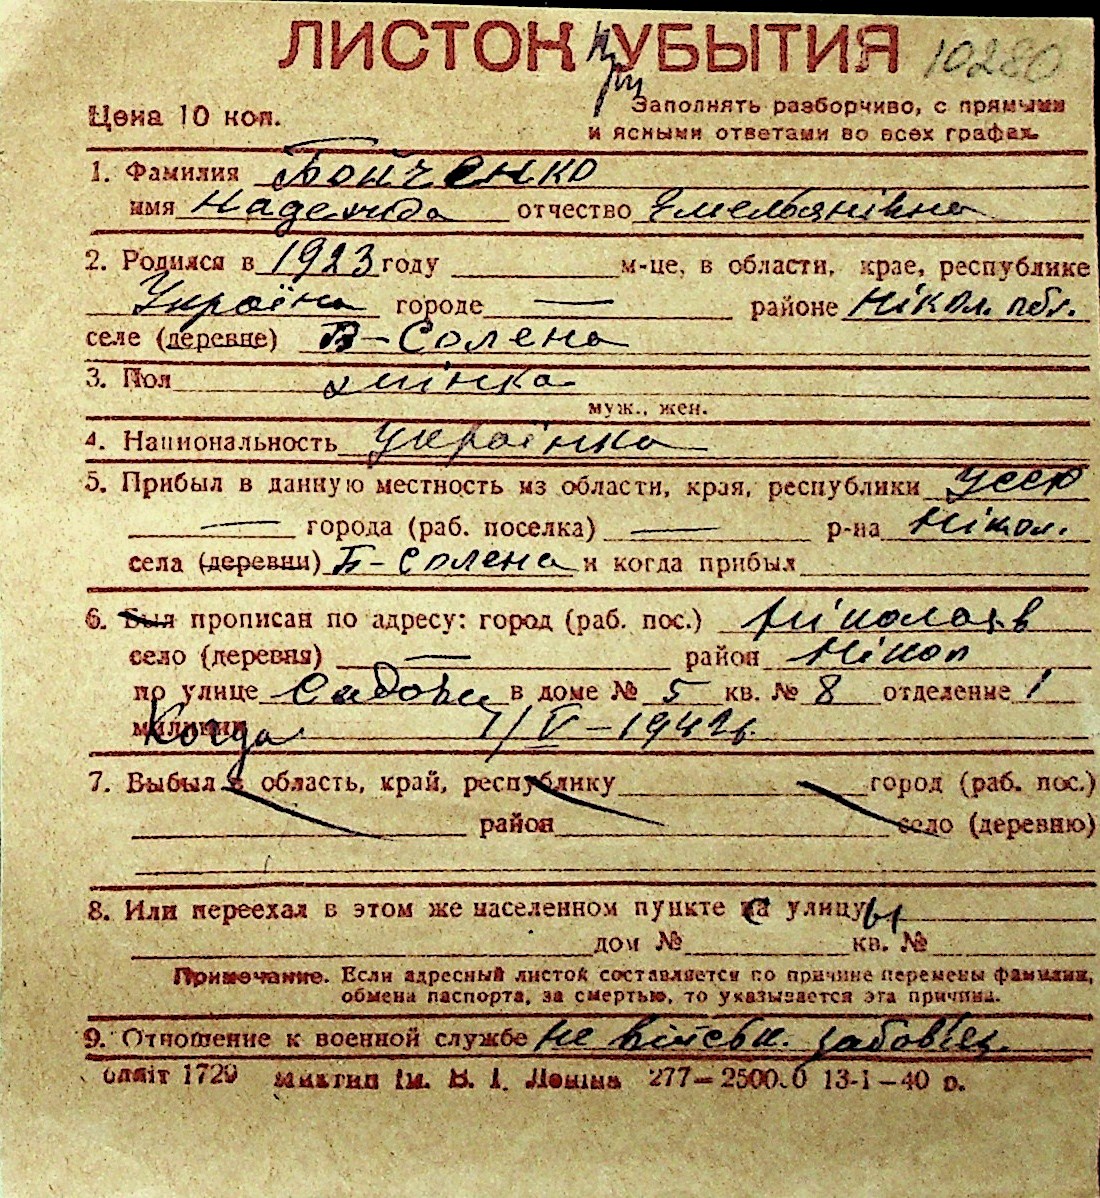 ЛИСТОК при УБЫТИЯ 10280
Цена 10 коп. Заполнять разборчиво, с прямыми
и ясными ответами во всех графах.
1. Фамилия Бойченко
имя Надежда отчество Емельянівна
2. Родился в 1923 году м-це, в области, крае, республике
Україна городе — районе Нікол. обл.
селе (деревне) В-Солена
3. Пол жінка
муж., жен.
4. Национальность Українка
5. Прибыл в данную местность из области, края, республики УССР
— города (раб. поселка) — р-на Нікол.
села (деревни) В-Солена и когда прибыл
6. Был прописан по адресу: город (раб. пос.) Ніколаєв
село (деревня) — район Нікол
по улице Садова в доме № 5 кв. № 8 отделение 1
милиции Когда 1/V-1942г.
7. Выбыл в область, край, республику город (раб. пос.)
район село (деревню)
8. Или переехал в этом же населенном пункте на с улицу ы
дом № кв. №
Примечание. Если адресный листок составляется по причине перемены фамилии,
обмена паспорта, за смертью, то указывается эта причина.
9. Отношение к военной службе не військ. забов'яз.
1729 ім. В. І. Леніна 277—2500.0 13-1—40 р.